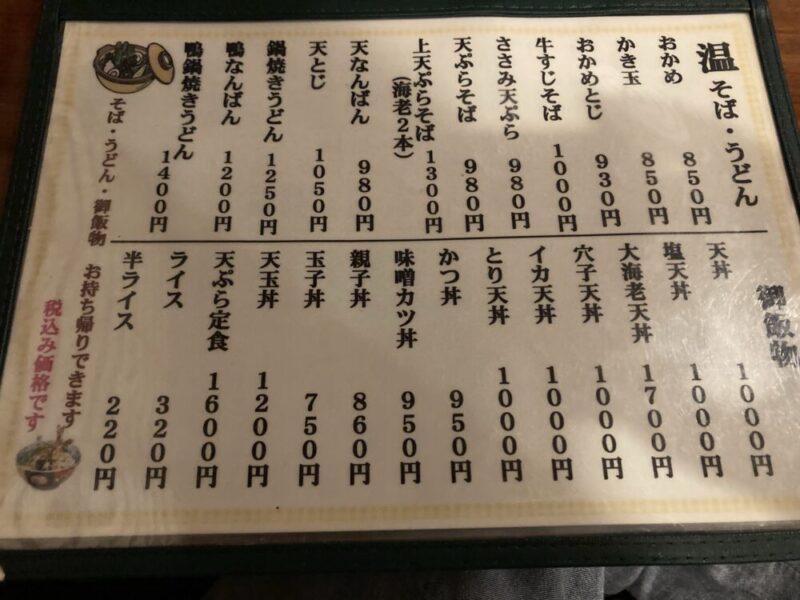 温 そば・うどん
おかめ 850円
かき玉 850円
おかめとじ 930円
牛すじそば 1000円
ささみ天ぷら 980円
天ぷらそば 980円
上天ぷらそば (海老2本) 1300円
天なんばん 980円
天とじ 1050円
鍋焼きうどん 1250円
鴨なんばん 1200円
鴨鍋焼きうどん 1400円
御飯物
天丼 1000円
塩天丼 1000円
大海老天丼 1700円
穴子天丼 1000円
イカ天丼 1000円
とり天丼 1000円
かつ丼 950円
味噌カツ丼 950円
親子丼 860円
玉子丼 750円
天玉丼 1200円
天ぷら定食 1600円
ライス 320円
半ライス 220円
そば・うどん・御飯物 お持ち帰りできます
税込み価格です